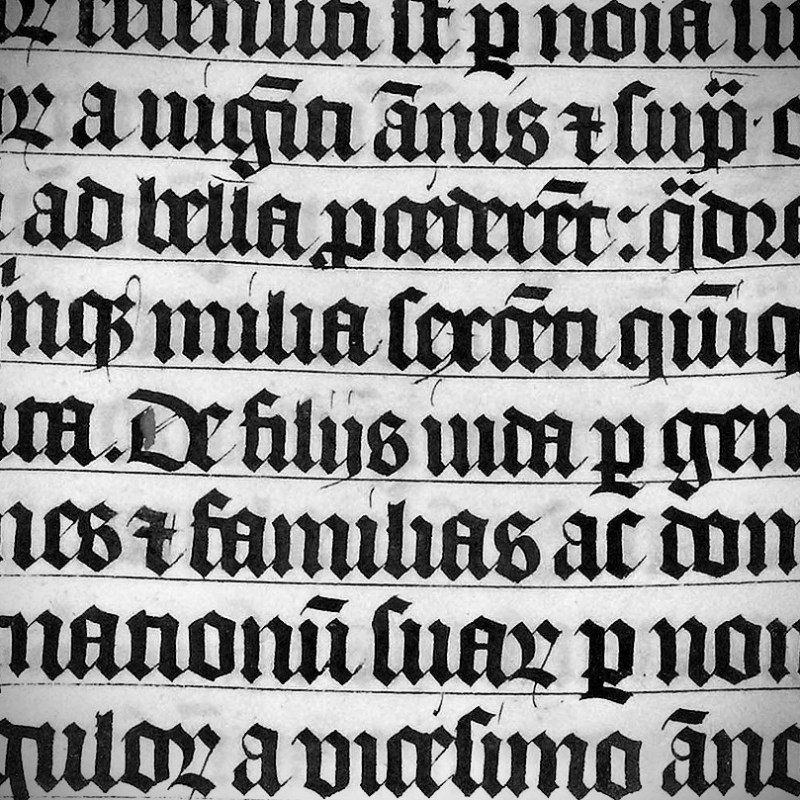 recenſiti ſt ꝑ noīa
ꝝ a uigīti ānis ⁊ ſup̄
ad bella ꝓcederēt : q̄dra
inqꝫ milia ſexcēti quīq
ita. De filijs iuda ꝑ gen
nes ⁊ familias ac dom
nationū ſuaꝝ ꝑ nom
guloꝝ a viceſimo āno